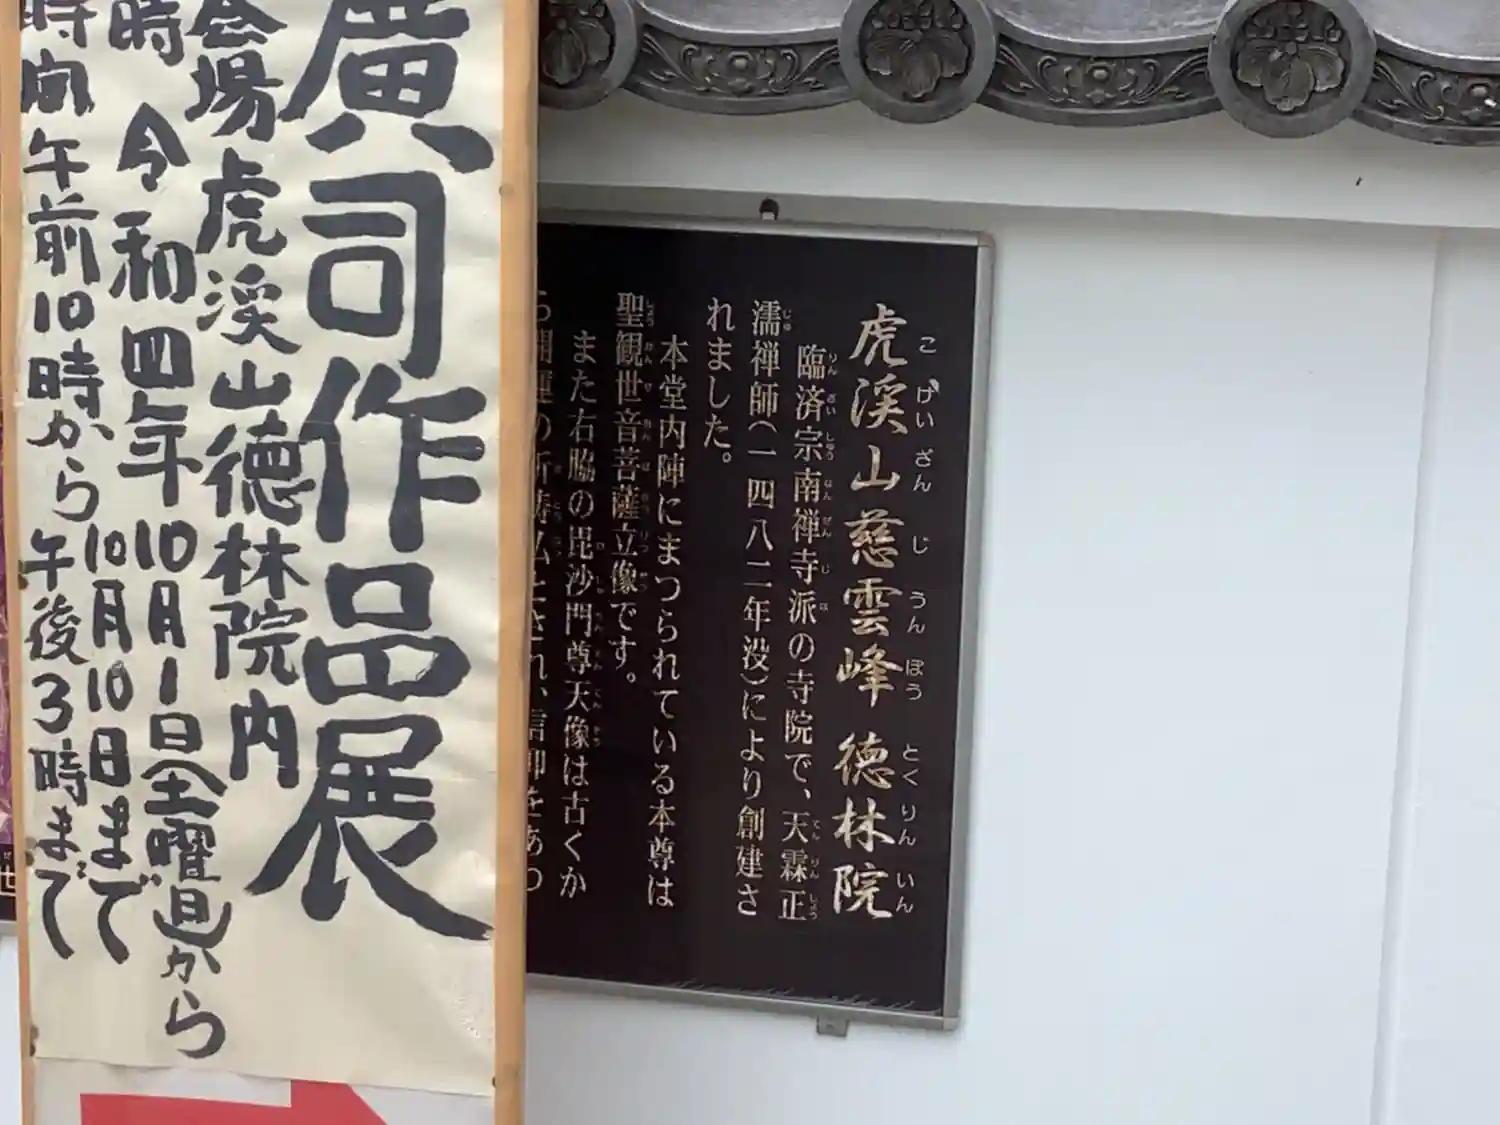 廣司作品展
会場虎渓山徳林院内
時 令和四年10月1日(土曜日)から
10月10日まで
時間午前10時から午後3時まで
虎渓山慈雲峰 徳林院
こげいざん じうんぽう とくりんいん
臨済宗南禅寺派の寺院で、天霖正
濡禅師(一四八二年没)により創建さ
れました。
本堂内陣にまつられている本尊は
聖観世音菩薩立像です。
また右脇の毘沙門尊天像は古くか
ら開運の祈祷仏とされ、信仰をあつ